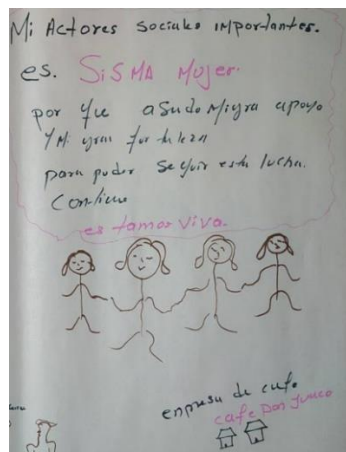 Mi Actores sociales importantes.
es. SiSMA Mujer.
por que a sido Mi gra apoyo
Y Mi gran fortaleza
para poder seguir esta lucha.
Continuo
estamos viva.
empresa de cafe
cafe